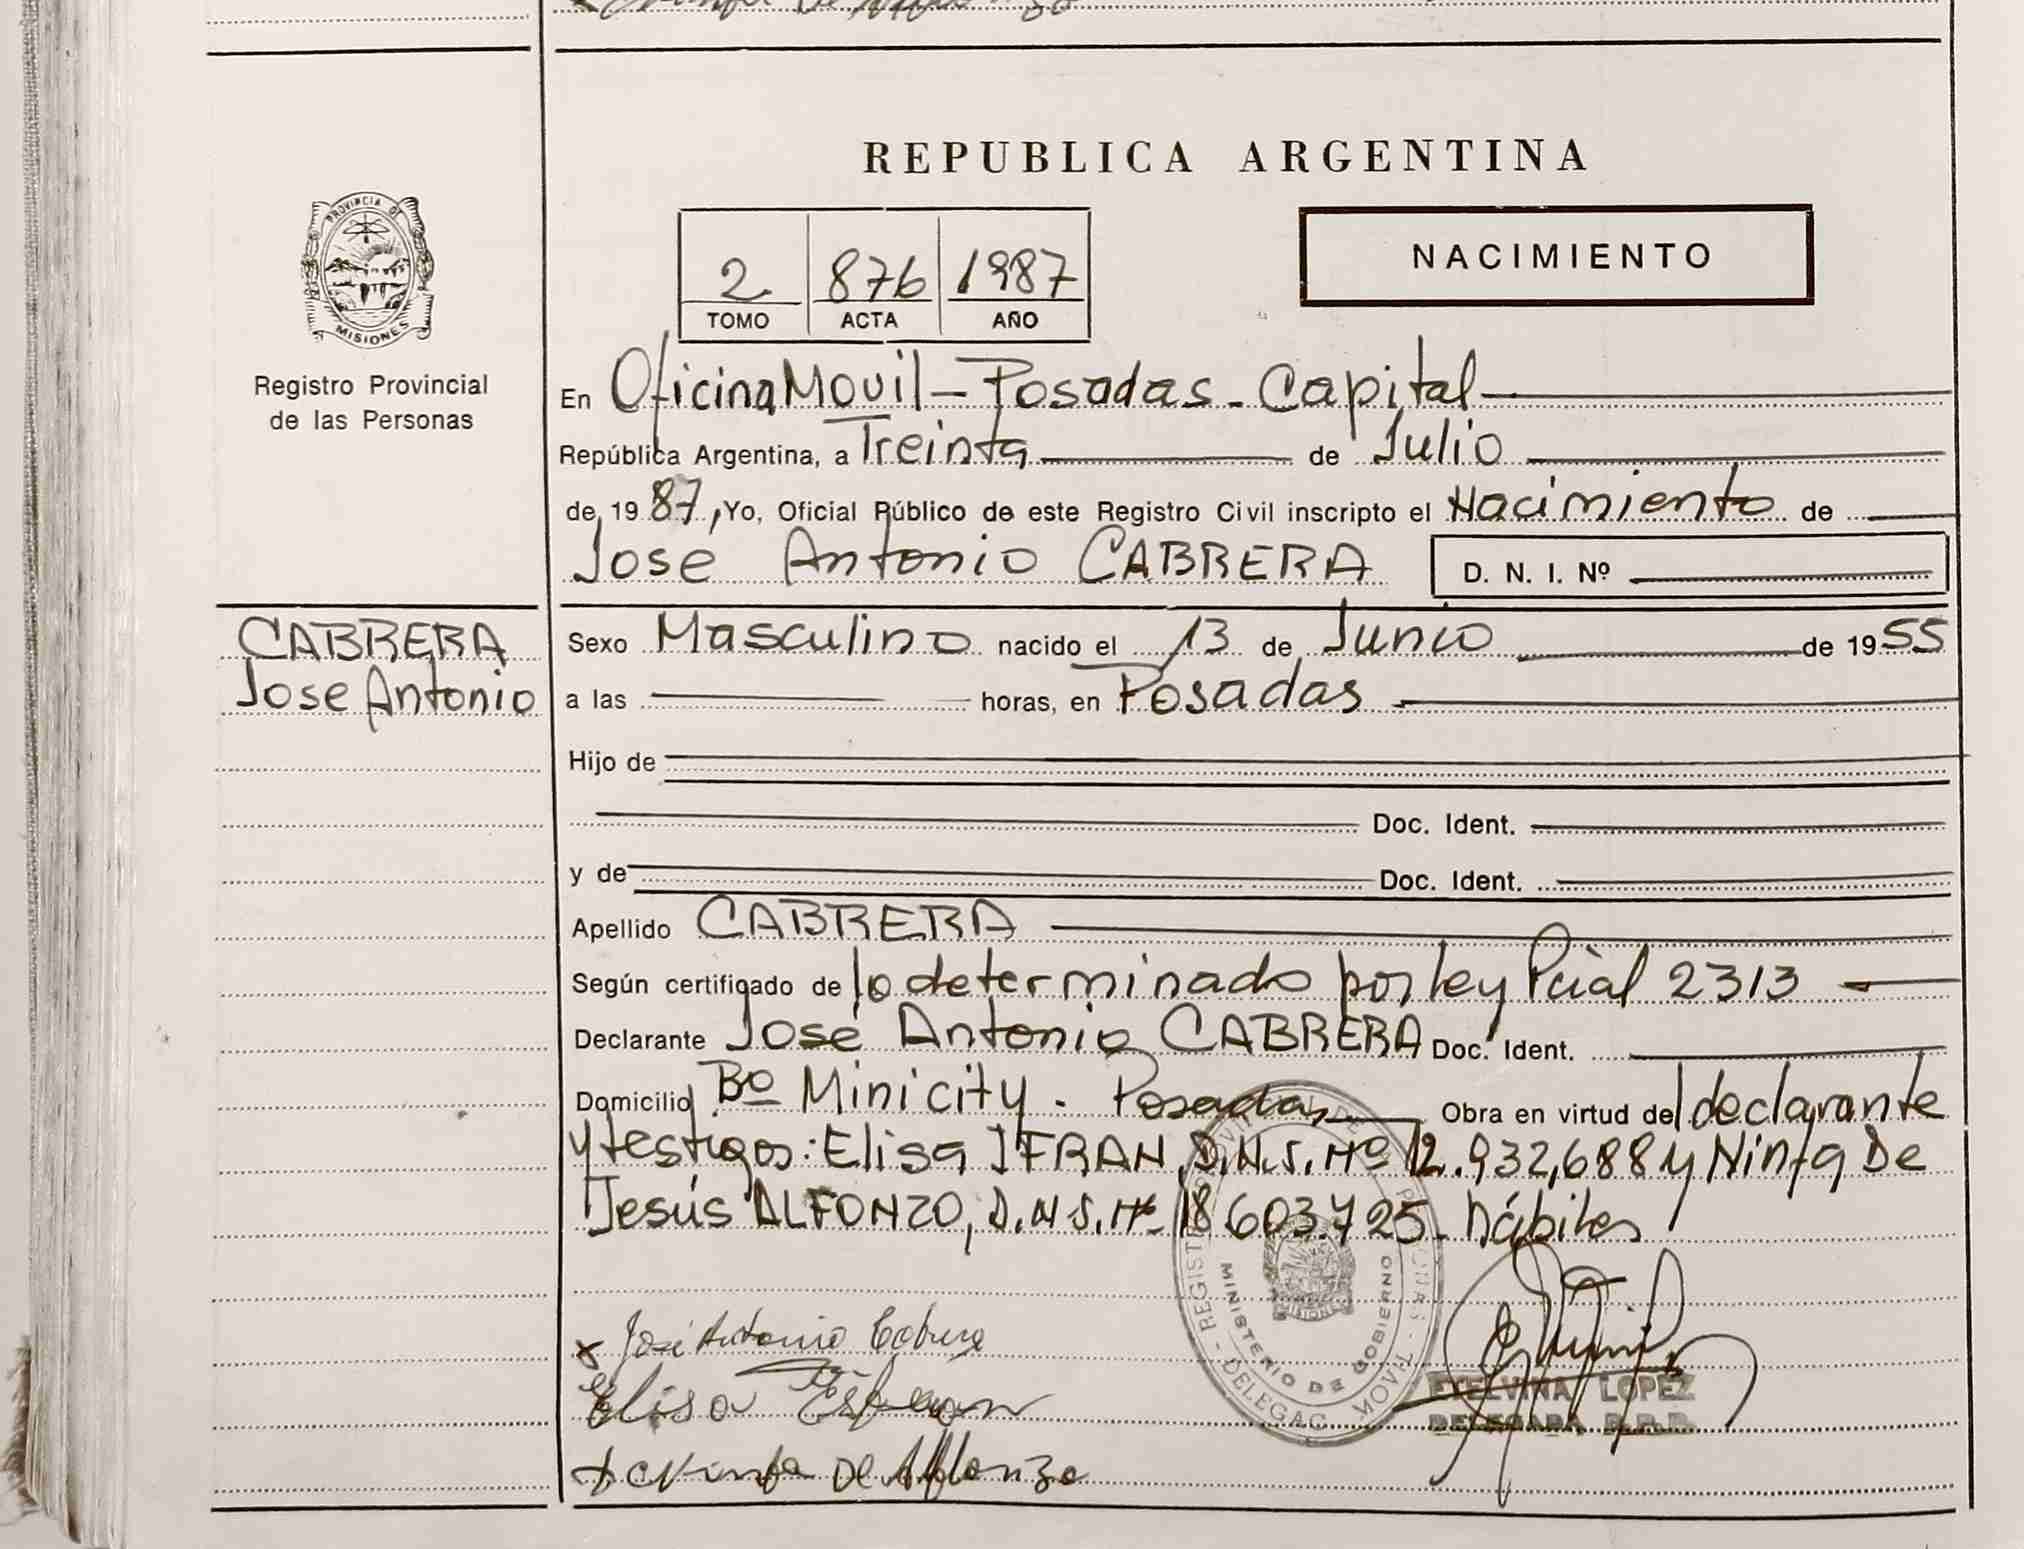 REPUBLICA ARGENTINA
PROVINCIA DE
MISIONES
Registro Provincial
de las Personas
2 876 1987
TOMO ACTA AÑO
NACIMIENTO
En Oficina Movil - Posadas - Capital
República Argentina, a Treinta de Julio
de 1987, Yo, Oficial Público de este Registro Civil inscripto el Nacimiento de
José Antonio CABRERA D. N. I. Nº
CABRERA
Jose Antonio
Sexo Masculino nacido el 13 de Junio de 1955
a las horas, en Posadas
Hijo de
Doc. Ident.
y de Doc. Ident.
Apellido CABRERA
Según certificado de lo determinado por ley Pcial 2313
Declarante José Antonio CABRERA Doc. Ident.
Domicilio Bº Minicity - Posadas Obra en virtud del declarante
y testigos: Elisa IFRAN, D.N.I. Nº 12.932,688 y Ninfa De
Jesús ALFONZO, D.N.I. Nº 18603.725 - hábiles
José Antonio Cabrera
Elisa
Ninfa De Alfonzo
MINISTERIO DE GOBIERNO
MISIONES
LOPEZ
DELEGADA